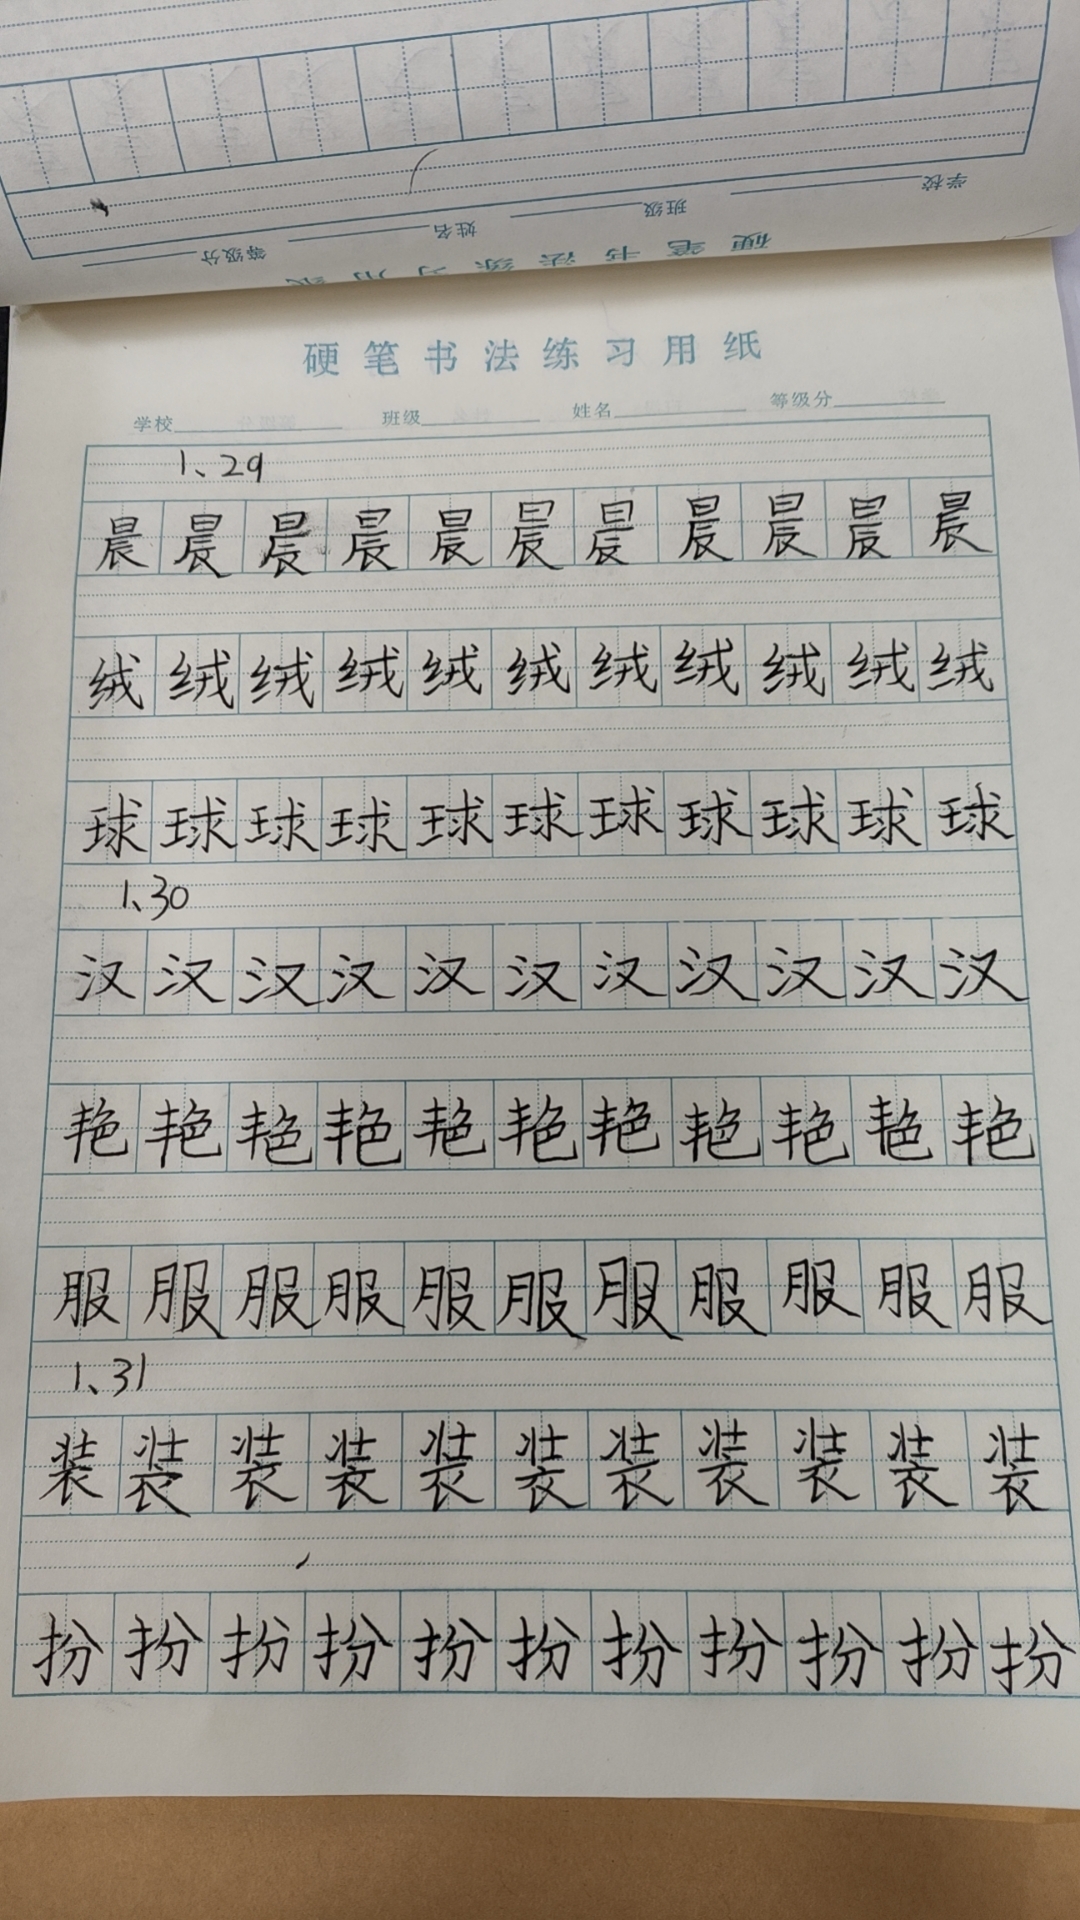 学校 班级 姓名 等级分
硬笔书法练习用纸
硬笔书法练习用纸
学校 班级 姓名 等级分
1、29
晨晨晨晨晨晨晨晨晨晨晨
绒绒绒绒绒绒绒绒绒绒绒
球球球球球球球球球球球
1、30
汉汉汉汉汉汉汉汉汉汉汉
艳艳艳艳艳艳艳艳艳艳艳
服服服服服服服服服服服
1、31
装装装装装装装装装装装
扮扮扮扮扮扮扮扮扮扮扮